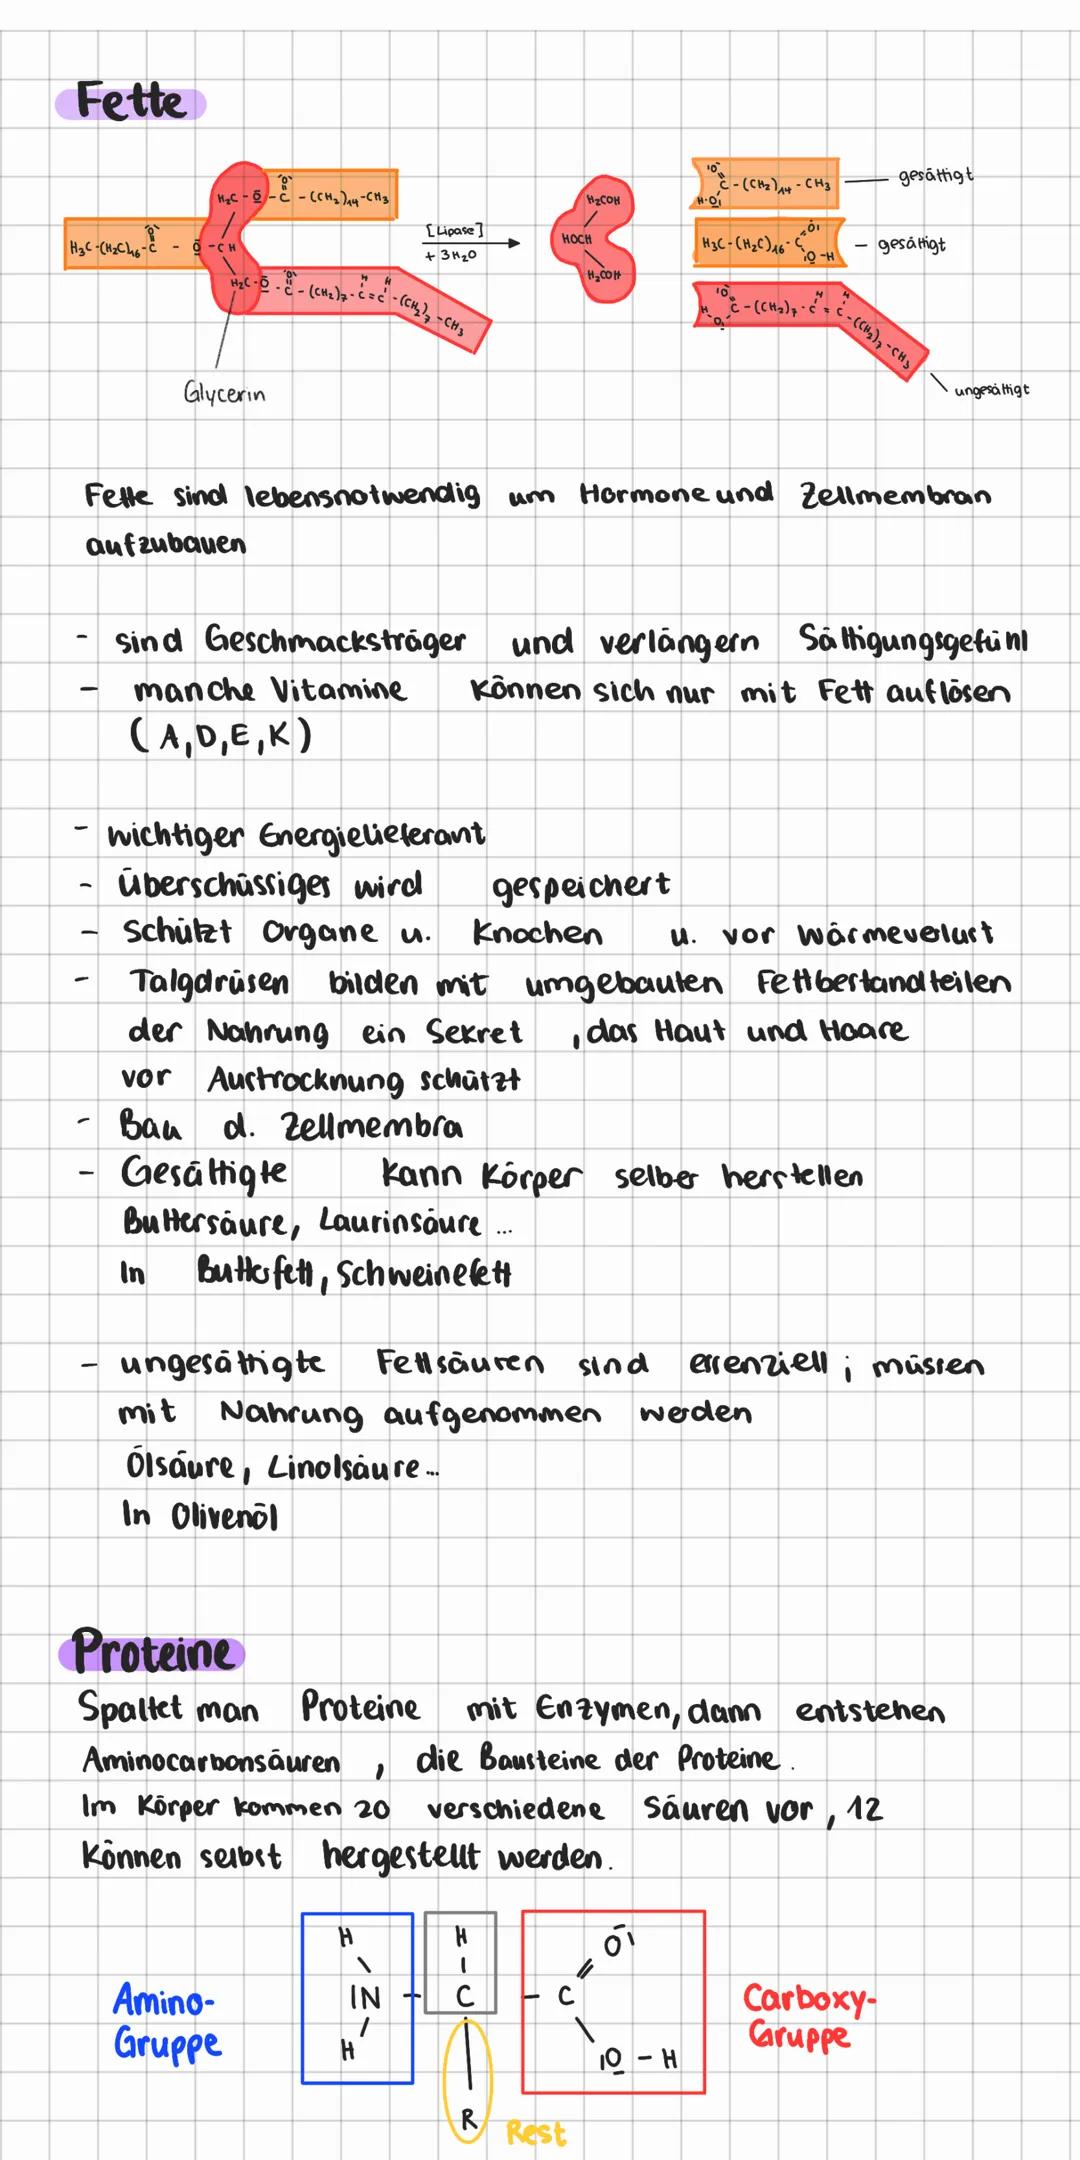 Fette
H₂C - O̅ - C - (CH₂)₁₄-CH₃
H₃C-(H₂C)₁₆-C - O̅ - CH
H₂C-O̅ - C - (CH₂)₇-C=C-(CH₂)₇-CH₃
Glycerin
[Lipase]
+ 3H₂O
H₂COH
HOCH
H₂COH
C-(CH₂)₁₄-CH₃
H-O
gesättigt
H₃C-(H₂C)₁₆-C
O-H
gesättigt
C-(CH₂)₇-C=C-(CH₂)₇-CH₃
ungesättigt
Fette sind lebensnotwendig um Hormone und Zellmembran
aufzubauen
- sind Geschmacksträger und verlängern Sättigungsgefühl
- manche Vitamine können sich nur mit Fett auflösen
(A,D,E,K)
- wichtiger Energielieferant
- Überschüssiges wird gespeichert
- Schützt Organe u. Knochen u. vor Wärmeverlust
- Talgdrüsen bilden mit umgebauten Fettbestandteilen
der Nahrung ein Sekret , das Haut und Haare
vor Austrocknung schützt
- Bau d. Zellmembra
- Gesättigte kann Körper selber herstellen
Buttersäure, Laurinsäure ...
In Butterfett, Schweinefett
- ungesättigte Fettsäuren sind essenziell ; müssen
mit Nahrung aufgenommen werden
Ölsäure, Linolsäure...
In Olivenöl
Proteine
Spaltet man Proteine mit Enzymen, dann entstehen
Aminocarbonsäuren , die Bausteine der Proteine.
Im Körper kommen 20 verschiedene Säuren vor , 12
können selbst hergestellt werden.
Amino-
Gruppe
H
IN
H
H
C
R
Rest
O
C
O - H
Carboxy-
Gruppe